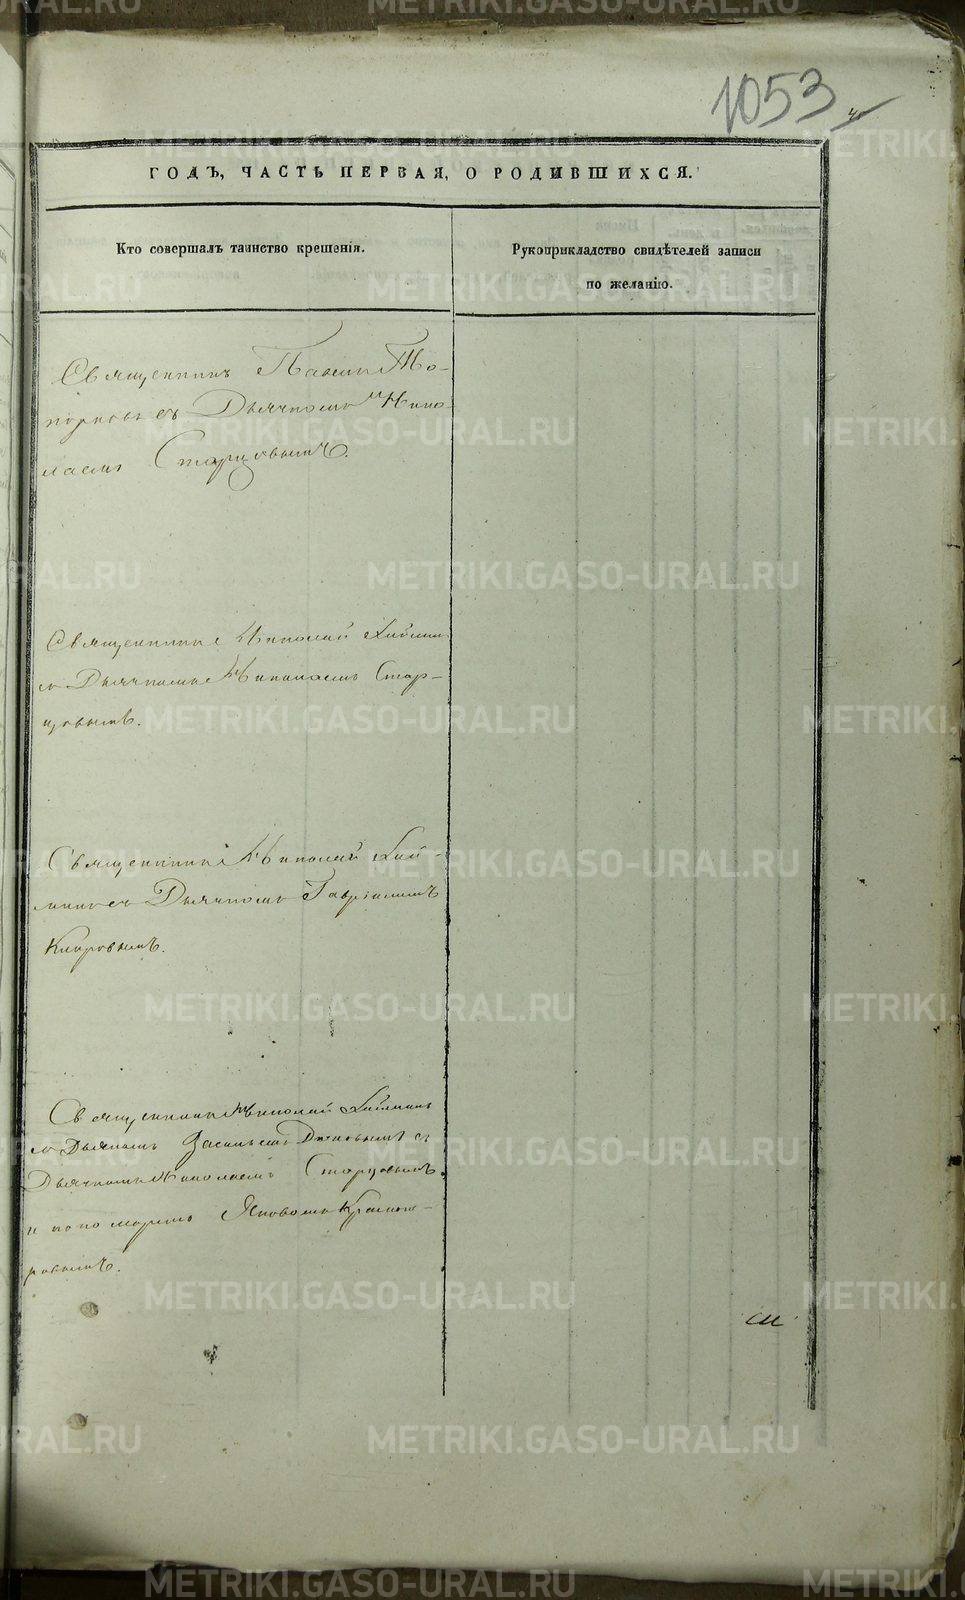 1053
ГОДЪ, ЧАСТЬ ПЕРВАЯ, О РОДИВШИХСЯ.
Кто совершалъ таинство крещенія.
Рукоприкладство свидѣтелей записи
по желанію.
Священникъ Павелъ То-
порковъ съ Дьячкомъ Нико-
лаемъ Старцовымъ.
Священникъ Николай
съ Дьячкомъ Николаемъ Стар-
цовымъ.
Священникъ Николай
съ Дьячкомъ Гавріиломъ
Кировымъ.
Священникъ Николай
съ Дьякономъ Василіемъ съ
Дьячкомъ Николаемъ Старцовымъ
и пономаремъ Яковомъ
METRIKI.GASO-URAL.RU